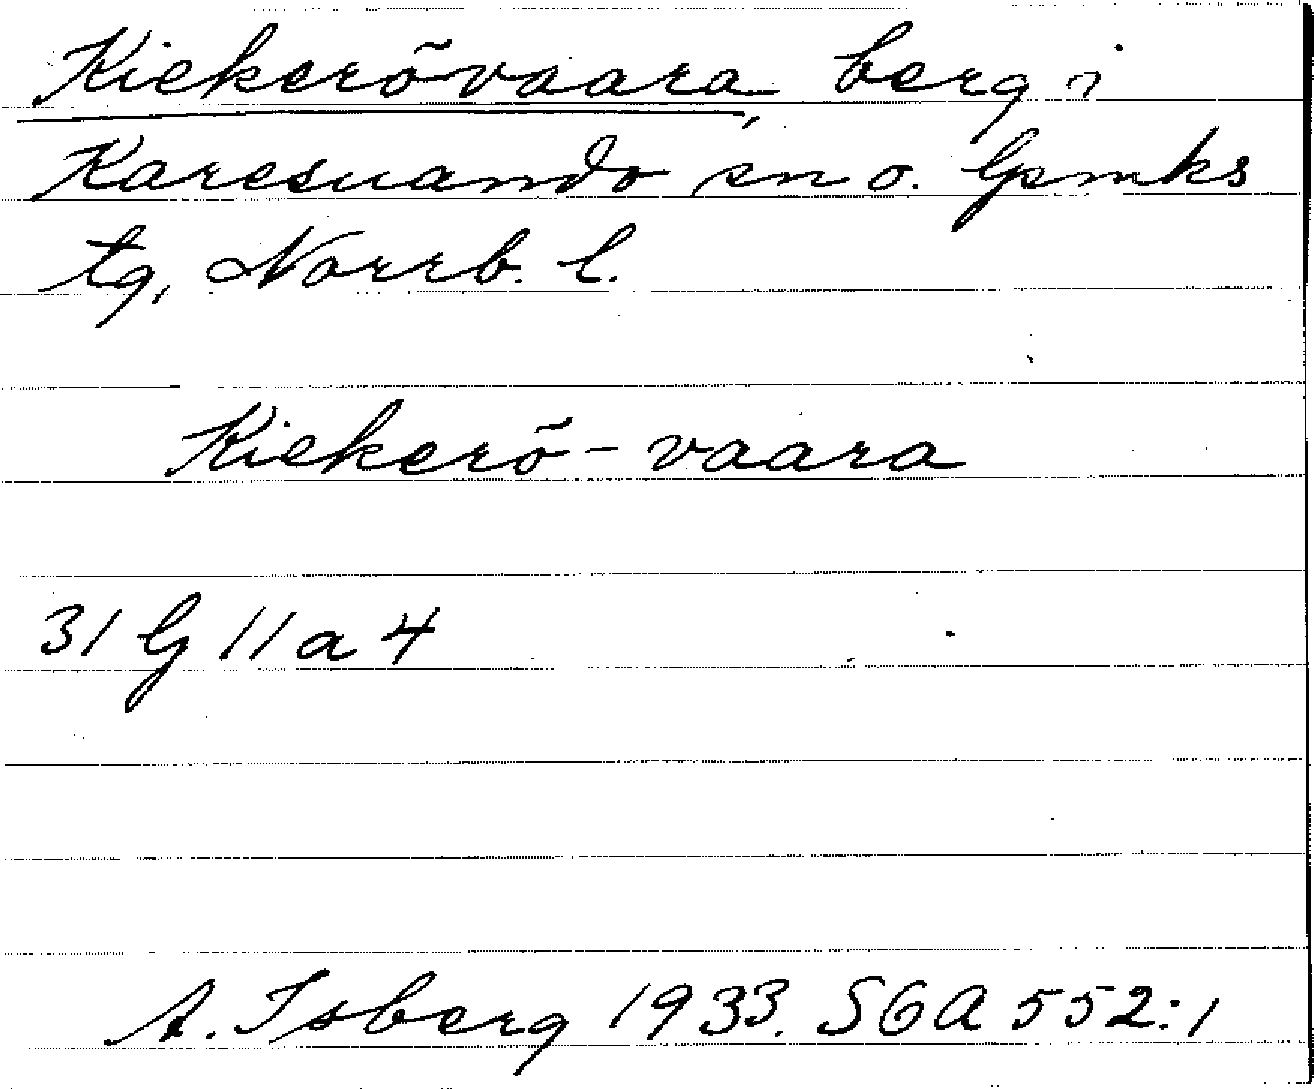 Kiekerövaara, berg i
Karesuando sn o. Gpmks
tg, Norrb. l.
Kiekerö-vaara
31 G 11 a 4
A. Isberg 1933. SGA 552:1